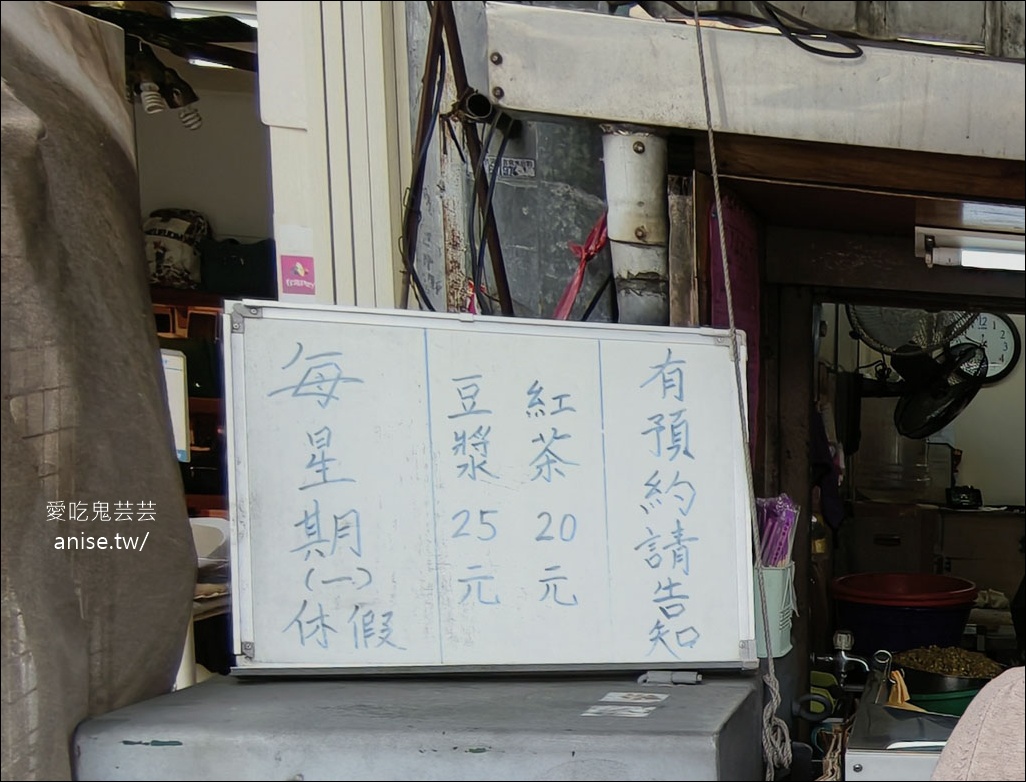 有預約請告知
紅茶 20 元
豆漿 25 元
每星期(一)休假
愛吃鬼芸芸
anise.tw/